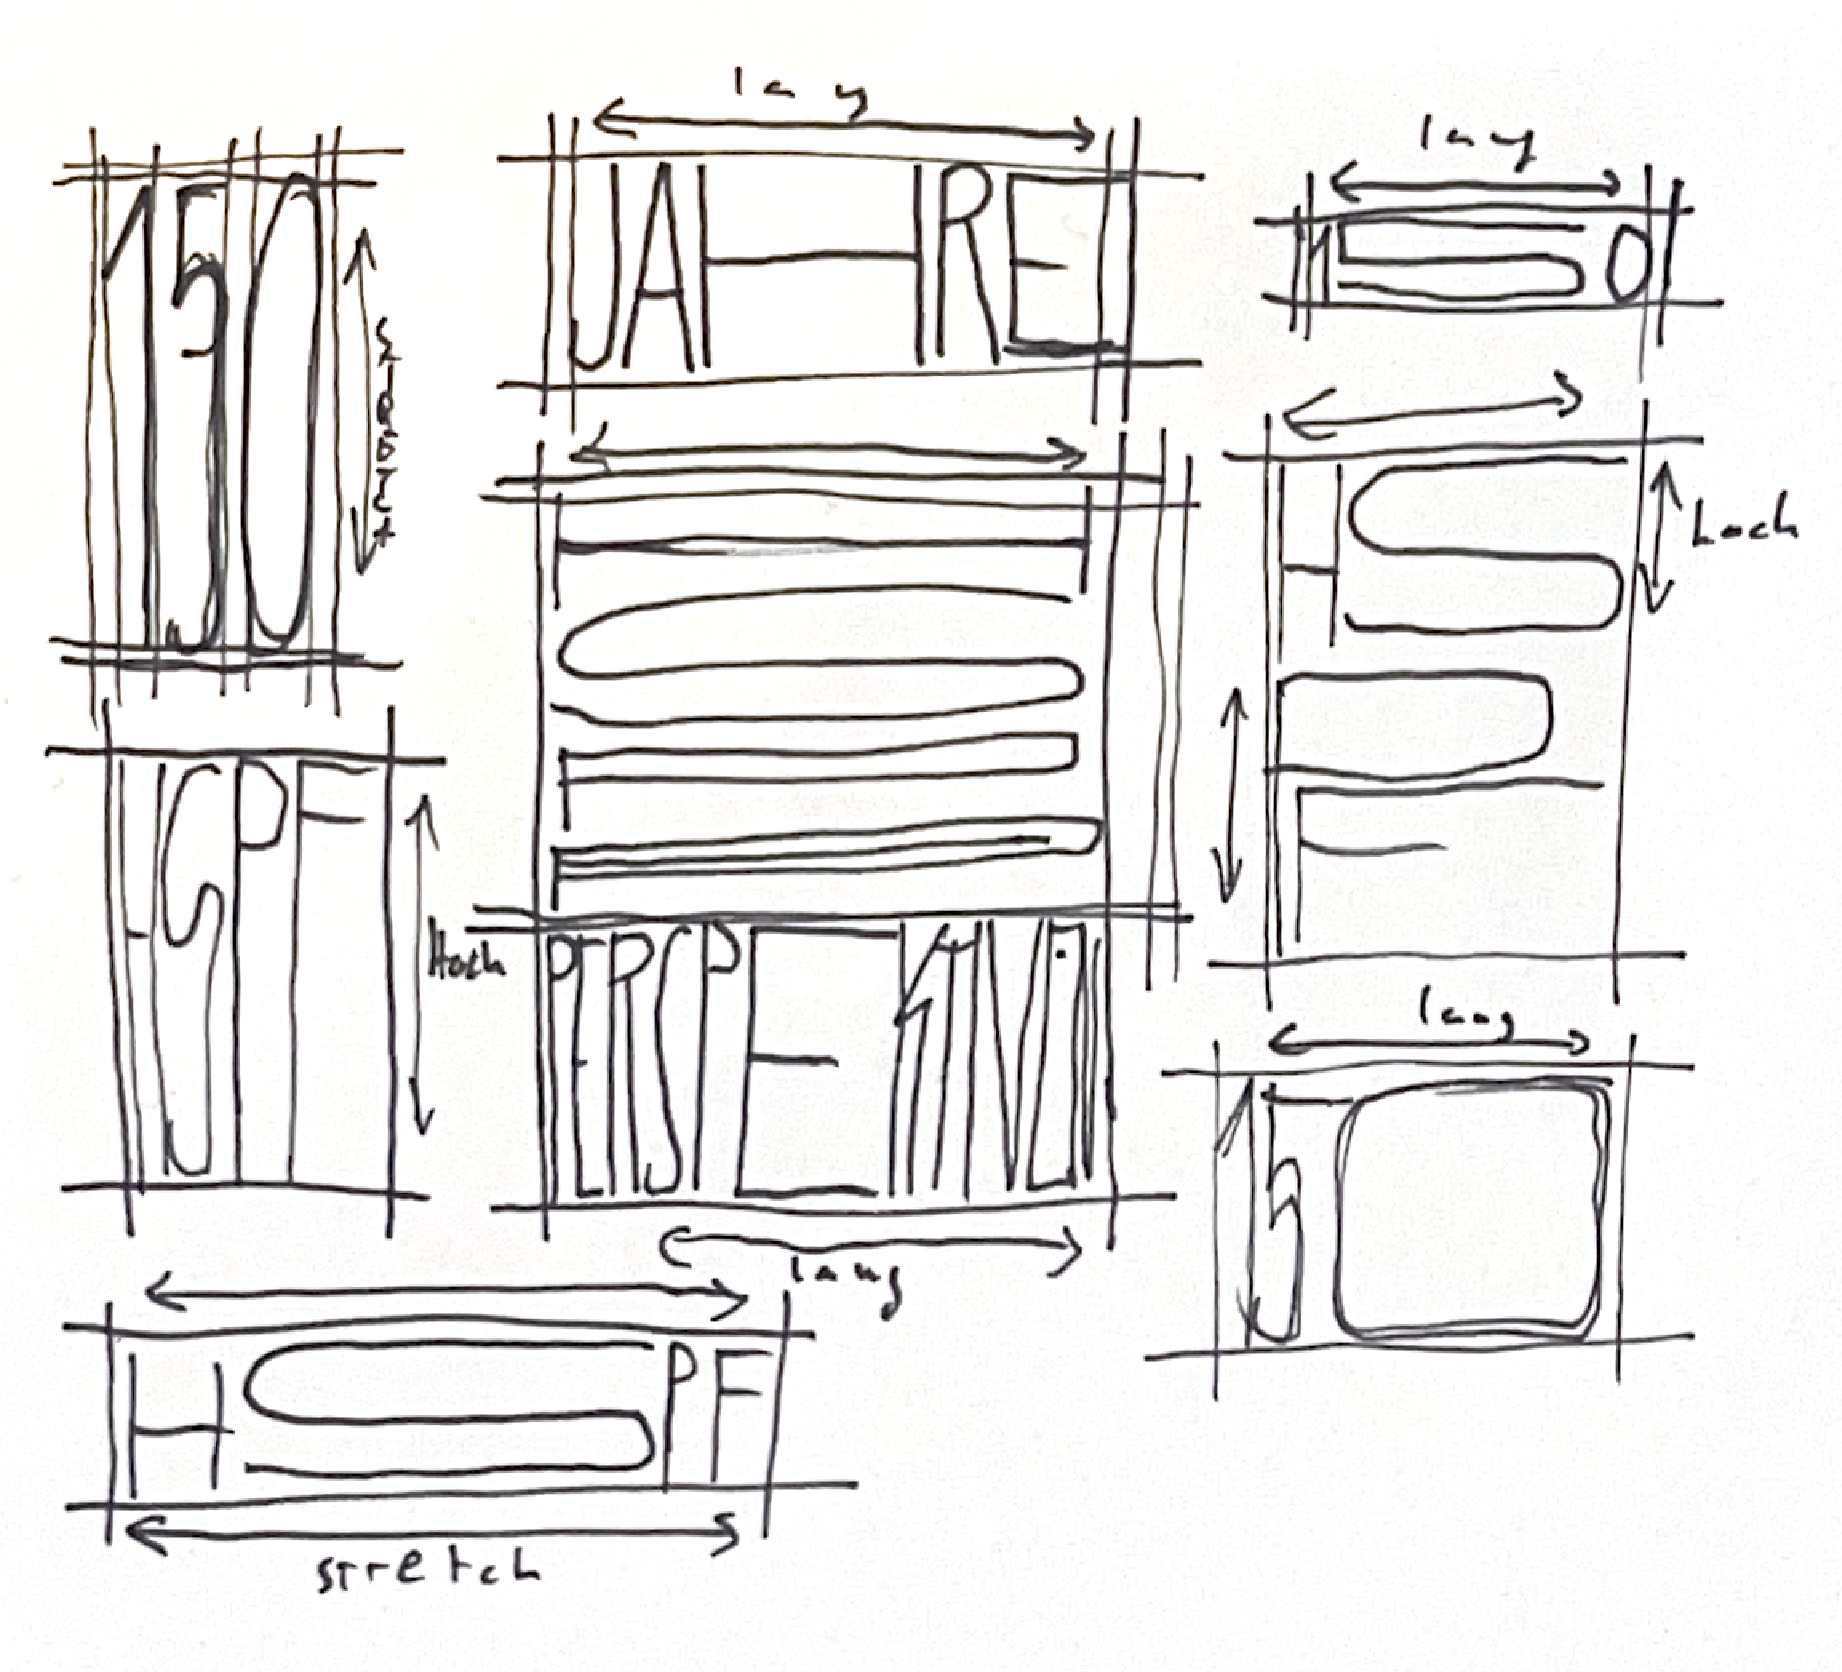 150
stretch
HSPF
Hoch
H S PF
stretch
lang
JAHRE
H
S
P
F
PERSPEKTIVEN
lang
lang
150
HS
hoch
P
F
lang
150